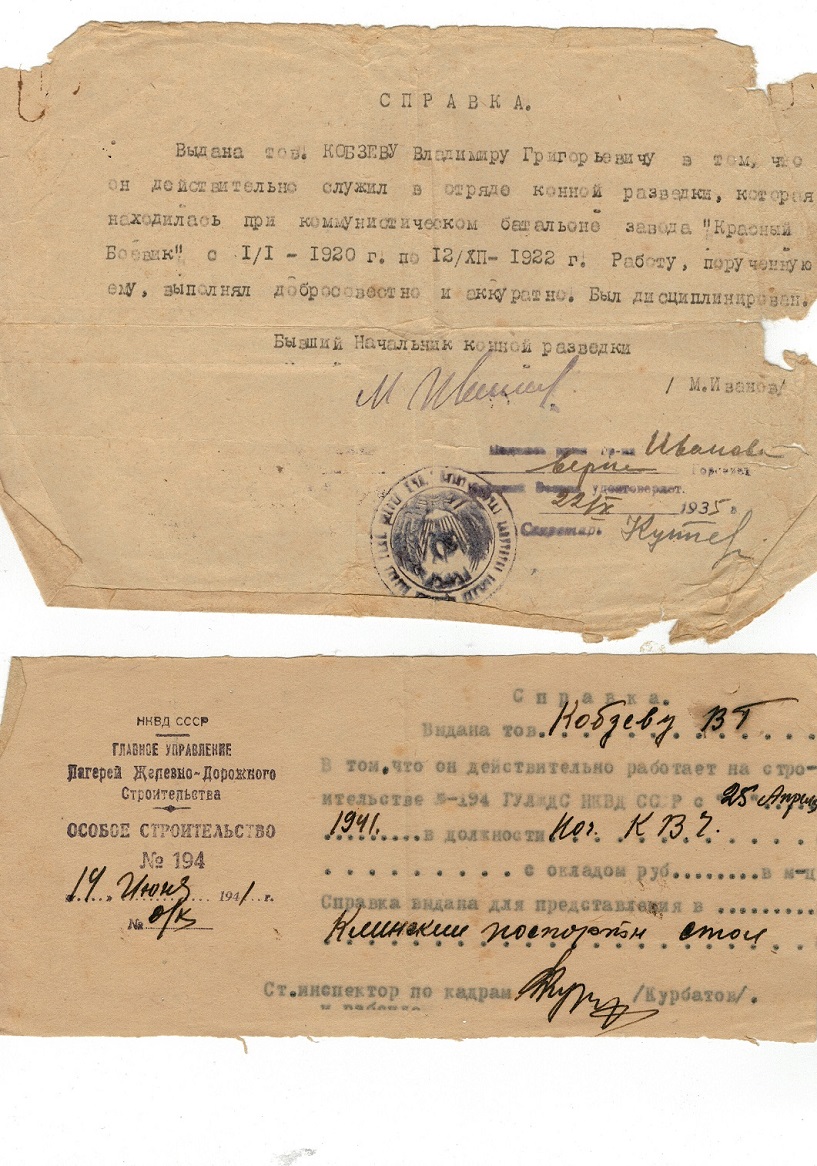 СПРАВКА.
Выдана тов. КОБЗЕВУ Владимиру Григорьевичу в том, что
он действительно служил в отряде конной разведки, которая
находилась при коммунистическом батальоне завода "Красный
Боевик" с I/I - 1920 г. по 12/ХП- 1922 г. Работу, порученную
ему, выполнял добросовестно и аккуратно. Был дисциплинирован.
Бывший Начальник конной разведки
М Иванов
/ М.Иванов/
Иванова
удостоверяет.
22/IX 1935 г
Секретарь
С п р а в к а.
Выдана тов. Кобзеву В Г
В том,что он действительно работает на стро-
ительстве №-194 ГУЛЖДС НКВД СССР с "25" Апреля
1941. в должности Нач. К В Ч.
с окладом руб. в м-ц
Справка выдана для представления в
Клинский паспортн стол
Ст.инспектор по кадрам /Курбатов/.
НКВД СССР
ГЛАВНОЕ УПРАВЛЕНИЕ
Лагерей Железно-Дорожного
Строительства
ОСОБОЕ СТРОИТЕЛЬСТВО
№ 194
14 Июня 1941 г.
№ о/к